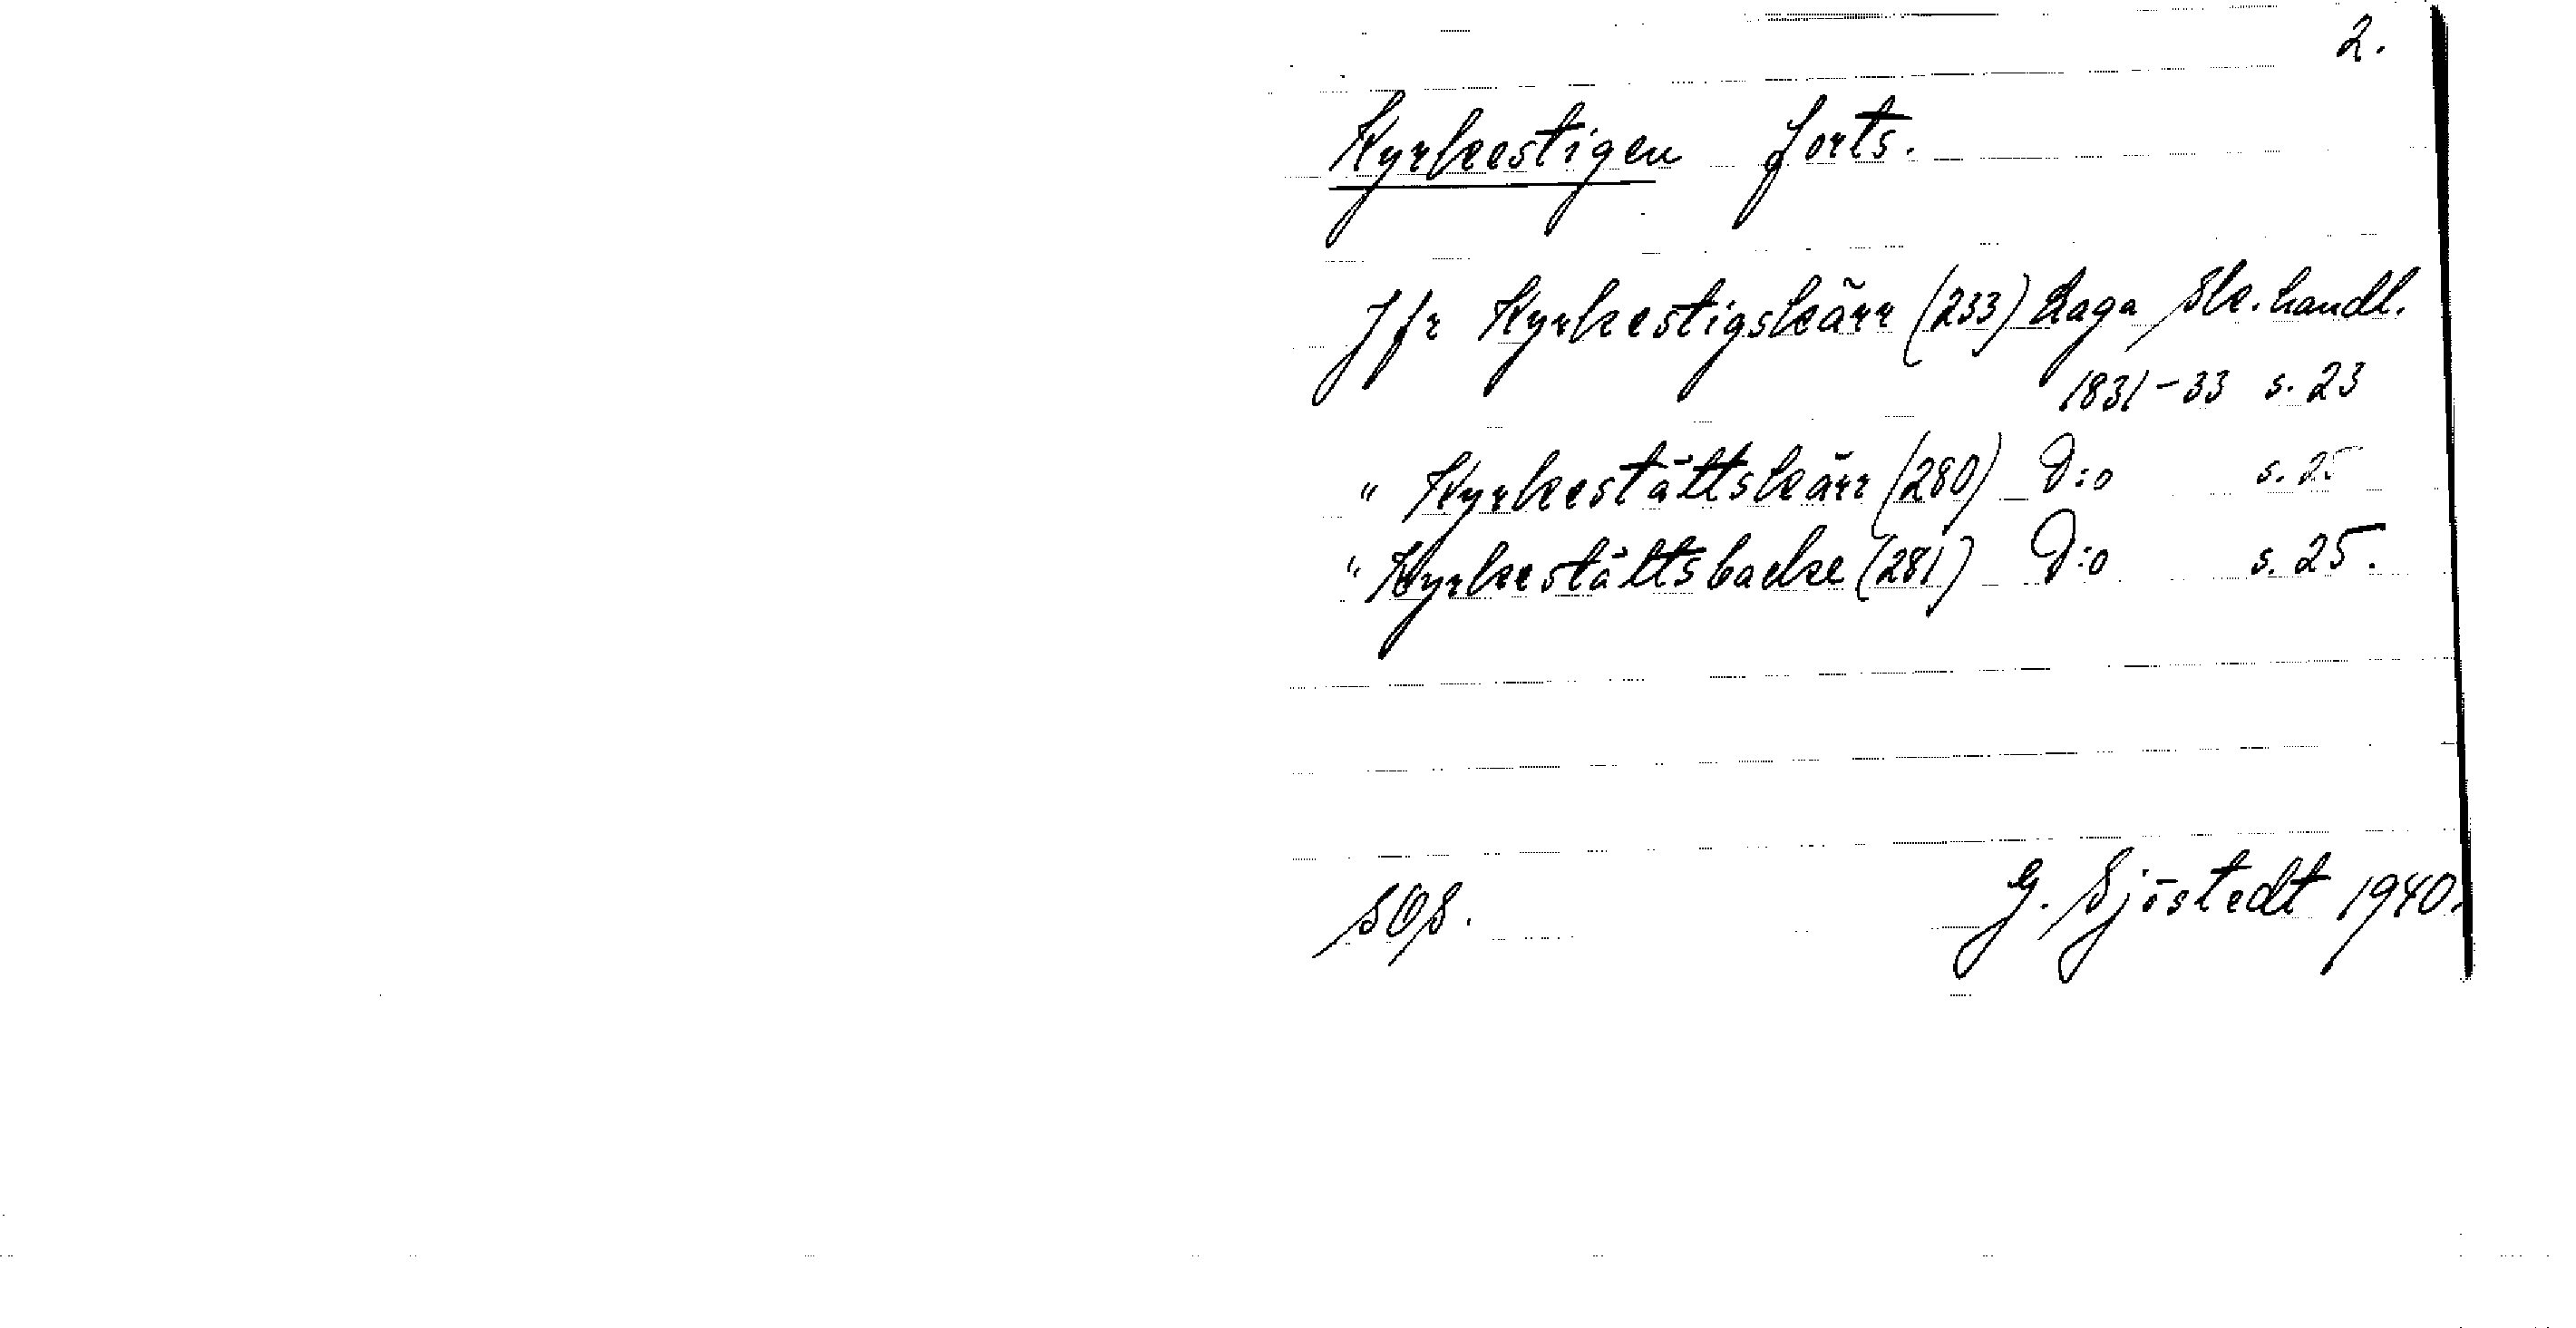 2.
Kyrkestigen forts.
Jfr Kyrkestigskärr (233) Laga Sk. handl.
1831-33 s. 23
" Kyrkestättskärr (280) D:o s. 25
" Kyrkestättsbacke (281) D:o s. 25.
SOS. G. Sjöstedt 1940.